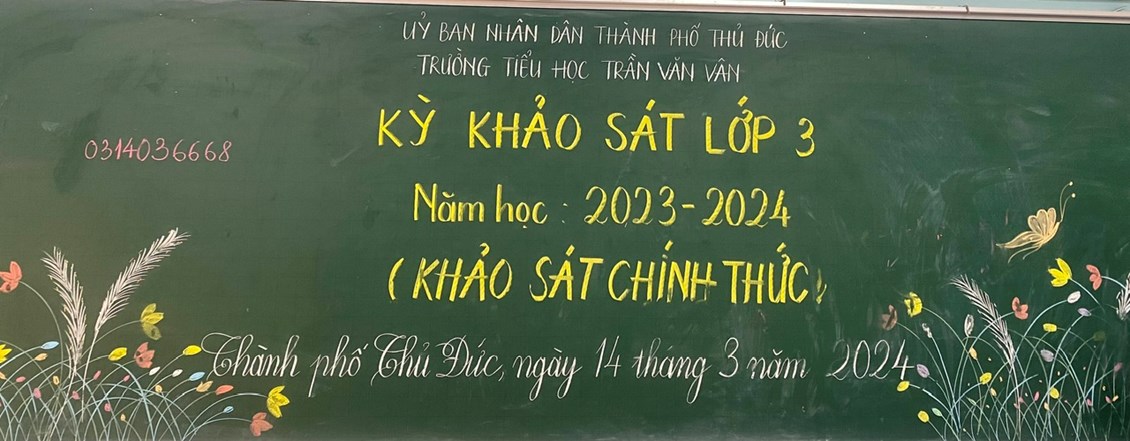 UỶ BAN NHÂN DÂN THÀNH PHỐ THỦ ĐỨC
TRƯỜNG TIỂU HỌC TRẦN VĂN VÂN
KỲ KHẢO SÁT LỚP 3
0314036668
Năm học : 2023-2024
(KHẢO SÁT CHÍNH THỨC)
Thành phố Thủ Đức, ngày 14 tháng 3 năm 2024